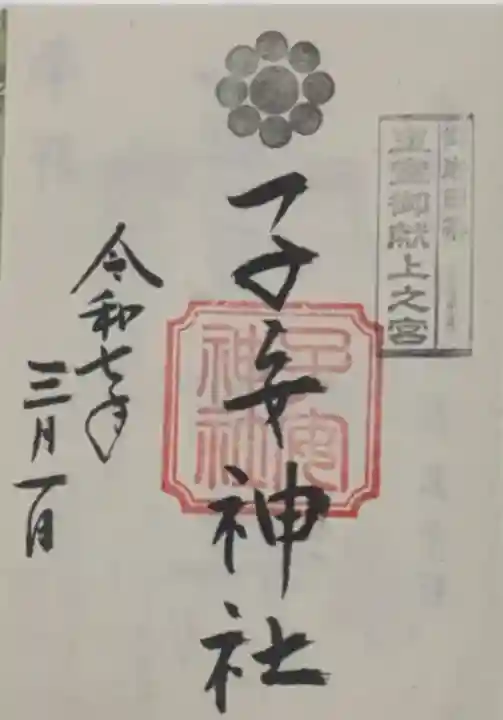 皇室御献上之宮
子安神社
子安神社
令和七年
三月一日